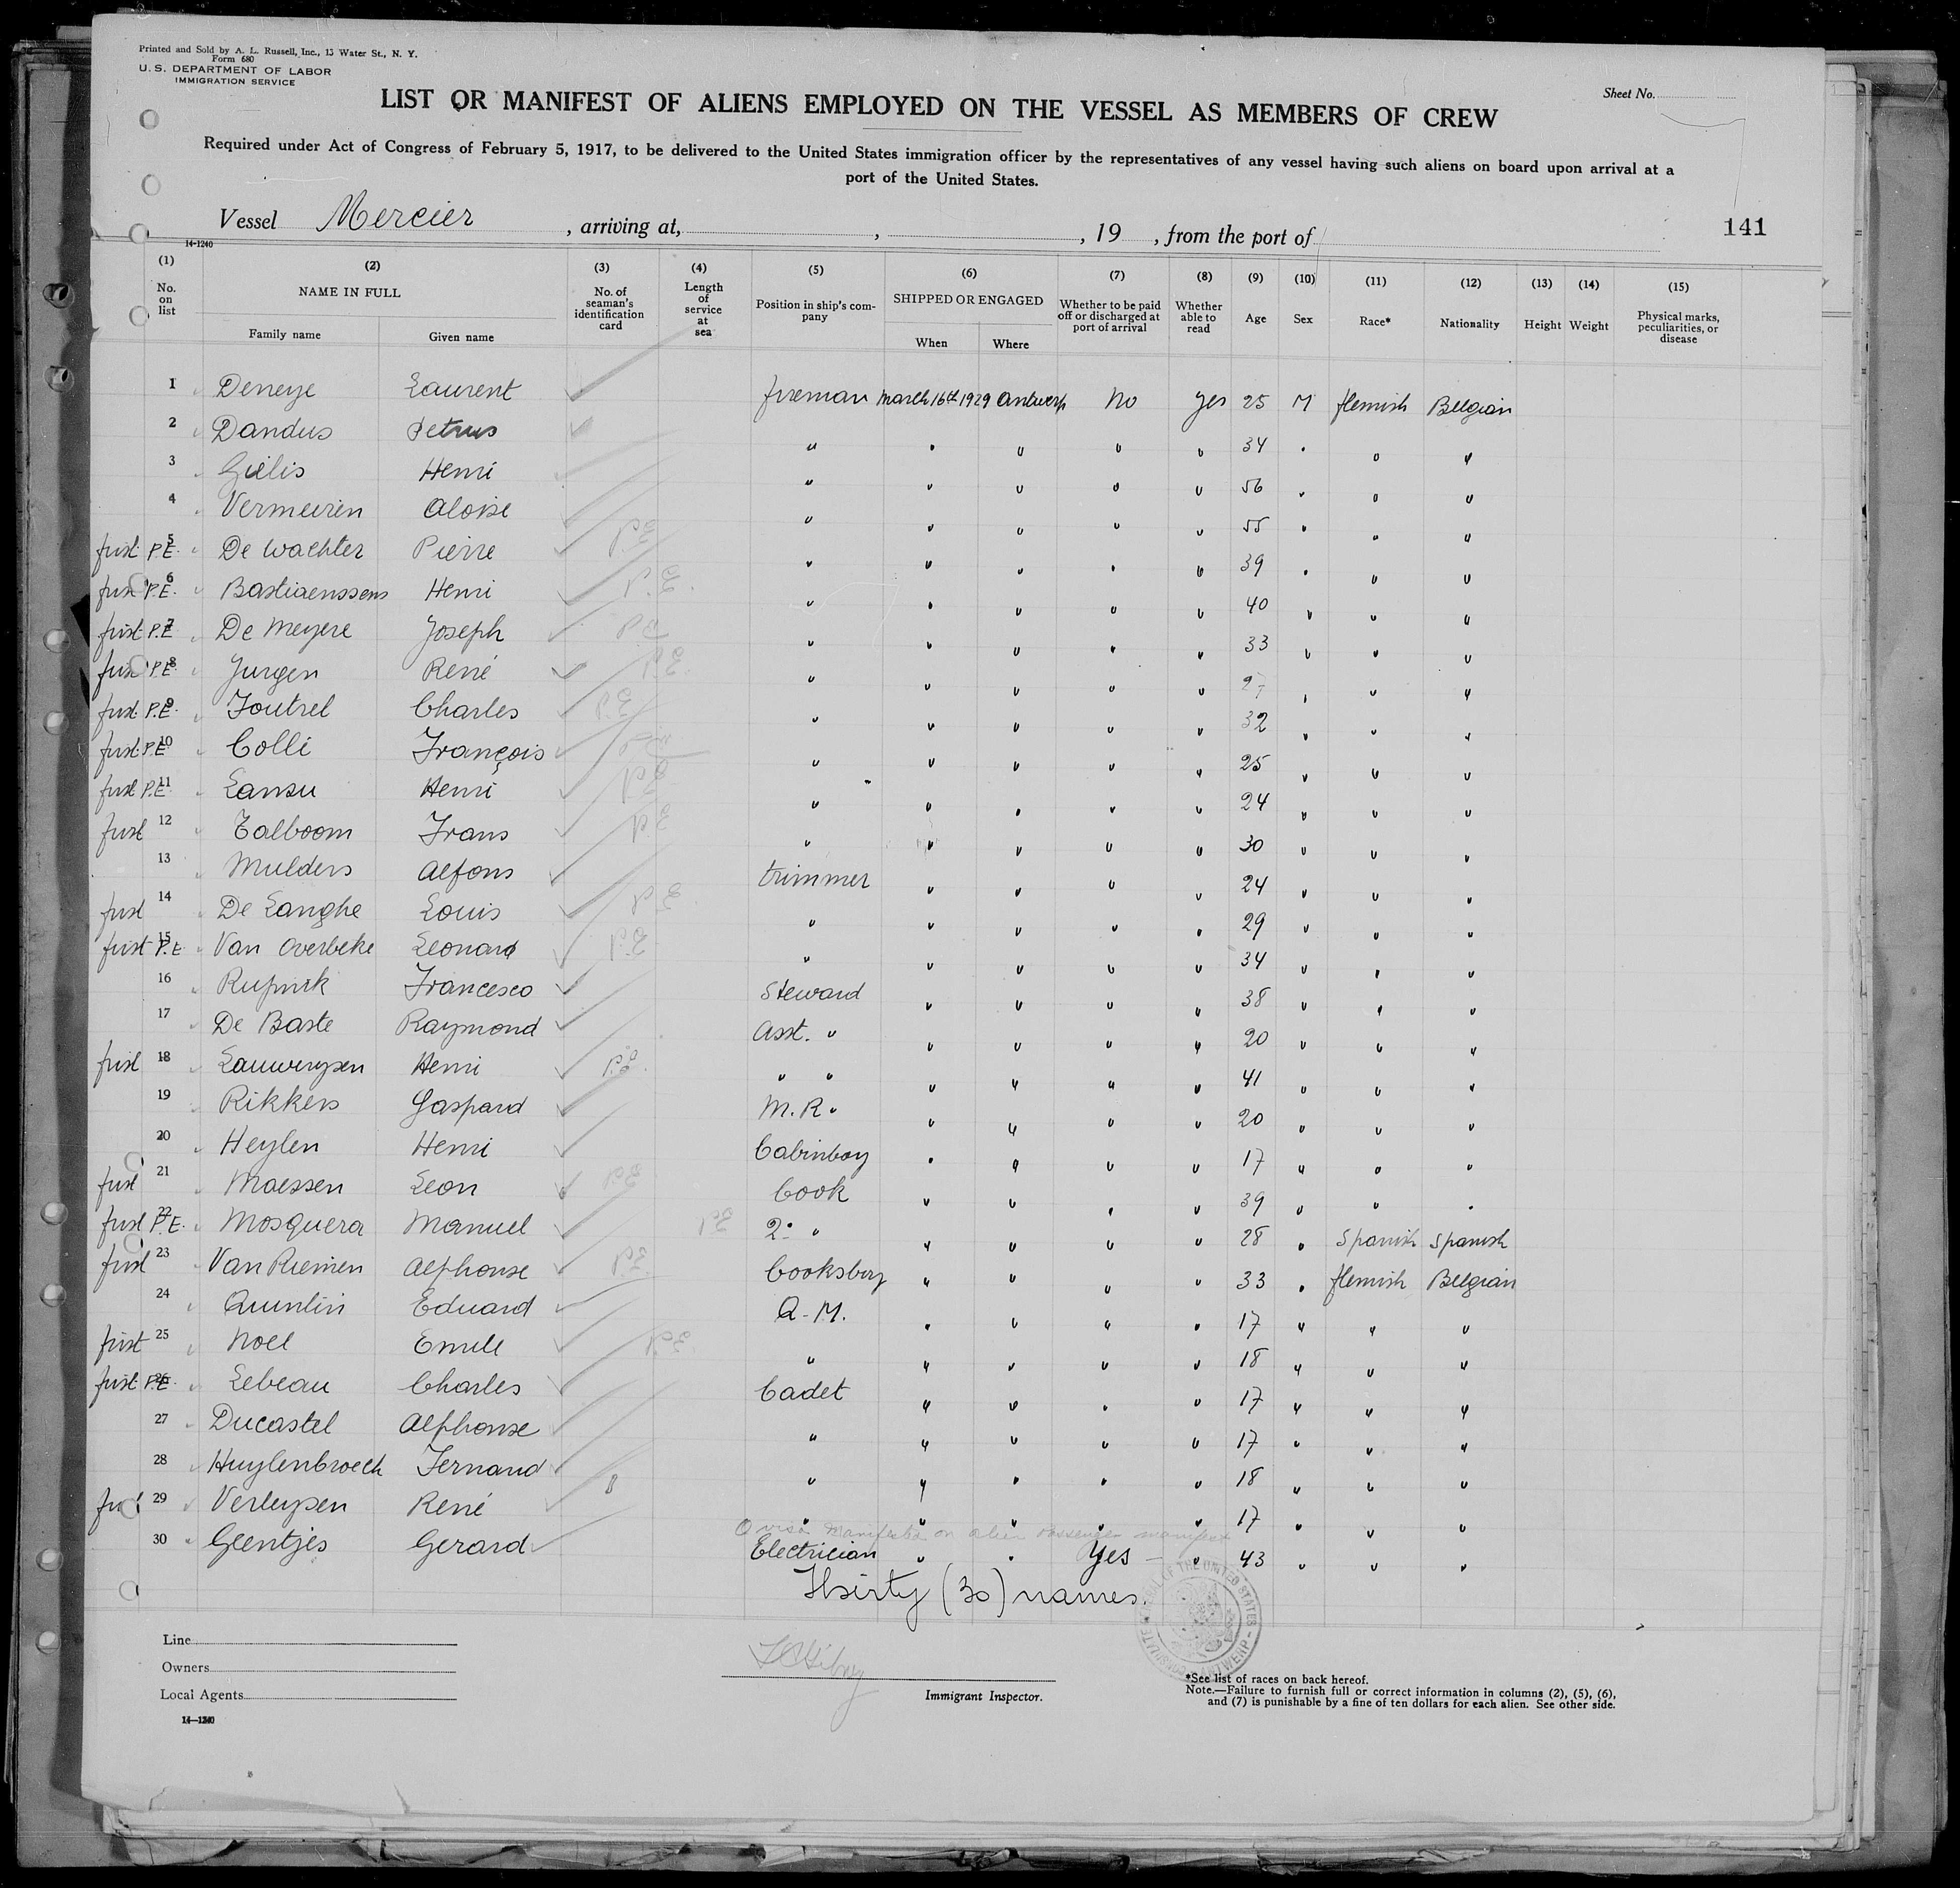 Printed and Sold by A. L. Russell, Inc., 13 Water St., N. Y.
Form 680
U. S. DEPARTMENT OF LABOR
IMMIGRATION SERVICE
Sheet No.
LIST OR MANIFEST OF ALIENS EMPLOYED ON THE VESSEL AS MEMBERS OF CREW
Required under Act of Congress of February 5, 1917, to be delivered to the United States immigration officer by the representatives of any vessel having such aliens on board upon arrival at a
port of the United States.
Vessel Mercier , arriving at, , , 19 , from the port of 141
14-1240
(1) (2) (3) (4) (5) (6) (7) (8) (9) (10) (11) (12) (13) (14) (15)
No. on list NAME IN FULL Family name Given name No. of seaman's identification card Length of service at sea Position in ship's company SHIPPED OR ENGAGED When Where Whether to be paid off or discharged at port of arrival Whether able to read Age Sex Race* Nationality Height Weight Physical marks, peculiarities, or disease
1 Deneye Laurent fireman March 16th 1929 Antwerp No Yes 25 M flemish Belgian
2 Dandus Petrus " " " " " 34 " " "
3 Gielis Henri " " " " " 56 " " "
4 Vermeiren Aloise " " " " " 55 " " "
first P.E. 5 De Wachter Pierre P.E. " " " " " 39 " " "
P.E. 6 Bastiaenssens Henri P.E. " " " " " 40 " " "
first P.E 7 De Meyere Joseph P.E " " " " " 33 " " "
P.E. 8 Jurgen René P.E. " " " " " " " "
first P.E. 9 Foutrel Charles P.E. " " " " " 32 " " "
first P.E 10 Colli François " " " " " 25 " " "
first P.E 11 Lansu Henri P.E " " " " " 24 " " "
first 12 Talboom Frans P.E " " " " " 30 " " "
13 Mulders Alfons trimmer " " " " 24 " " "
first 14 De Langhe Louis P.E. " " " " " 29 " " "
first P.E 15 Van Overbeke Leonard P.E. " " " " " 34 " " "
16 Rupnik Francesco Steward " " " " 38 " " "
17 De Baste Raymond Asst. " " " " " 20 " " "
first 18 Lauwerysen Henri P.E. " " " " " " 41 " " "
19 Rikkers Gaspard M.R. " " " " 20 " " "
20 Heylen Henri Cabinboy " " " " 17 " " "
first 21 Maessen Leon P.E. Cook " " " " 39 " " "
first P.E. 22 Mosquera Manuel P.E 2. " " " " " 28 " Spanish Spanish
first 23 Van Riemen Alphonse P.E. Cooksboy " " " " 33 " flemish Belgian
24 Quintin Eduard Q.M. " " " " 17 " " "
first 25 Noel Emile P.E. " " " " " 18 " " "
first P.E. 26 Lebeau Charles Cadet " " " " 17 " " "
27 Ducastel Alphonse " " " " " 17 " " "
28 Huylenbroeck Fernand " " " " " 18 " " "
29 Verleysen René " " " " " 17 " " "
visa manifested on alien passenger manifest
30 Geentjes Gerard Electrician " " Yes " 43 " " "
Thirty (30) names.
Line
Owners
Local Agents
14—1240
Immigrant Inspector.
*See list of races on back hereof.
Note.—Failure to furnish full or correct information in columns (2), (5), (6),
and (7) is punishable by a fine of ten dollars for each alien. See other side.